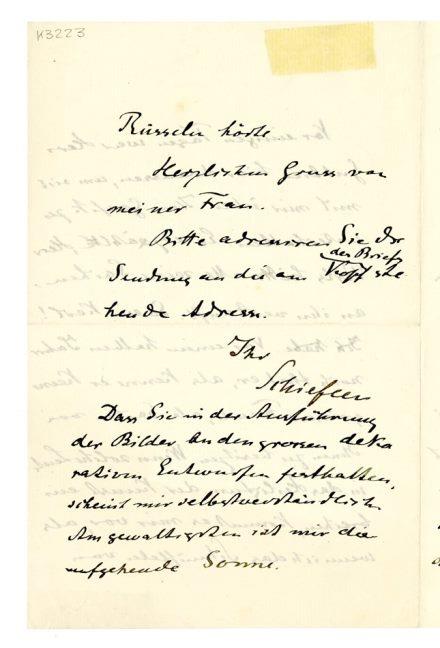 K3223
Rüsseln hörte.
Herzlichen Gruss von
meiner Frau.
Bitte adressieren Sie die
des Briefs
Sendung an die am Kopf ste
hende Adresse.
Ihr
Schiefler
Dass Sie in der Ausführung
der Bilder an den grossen deko
rativen Entwürfen festhalten,
scheint mir selbstverständlich.
Am gewaltigsten ist mir die
aufgehende Sonne.